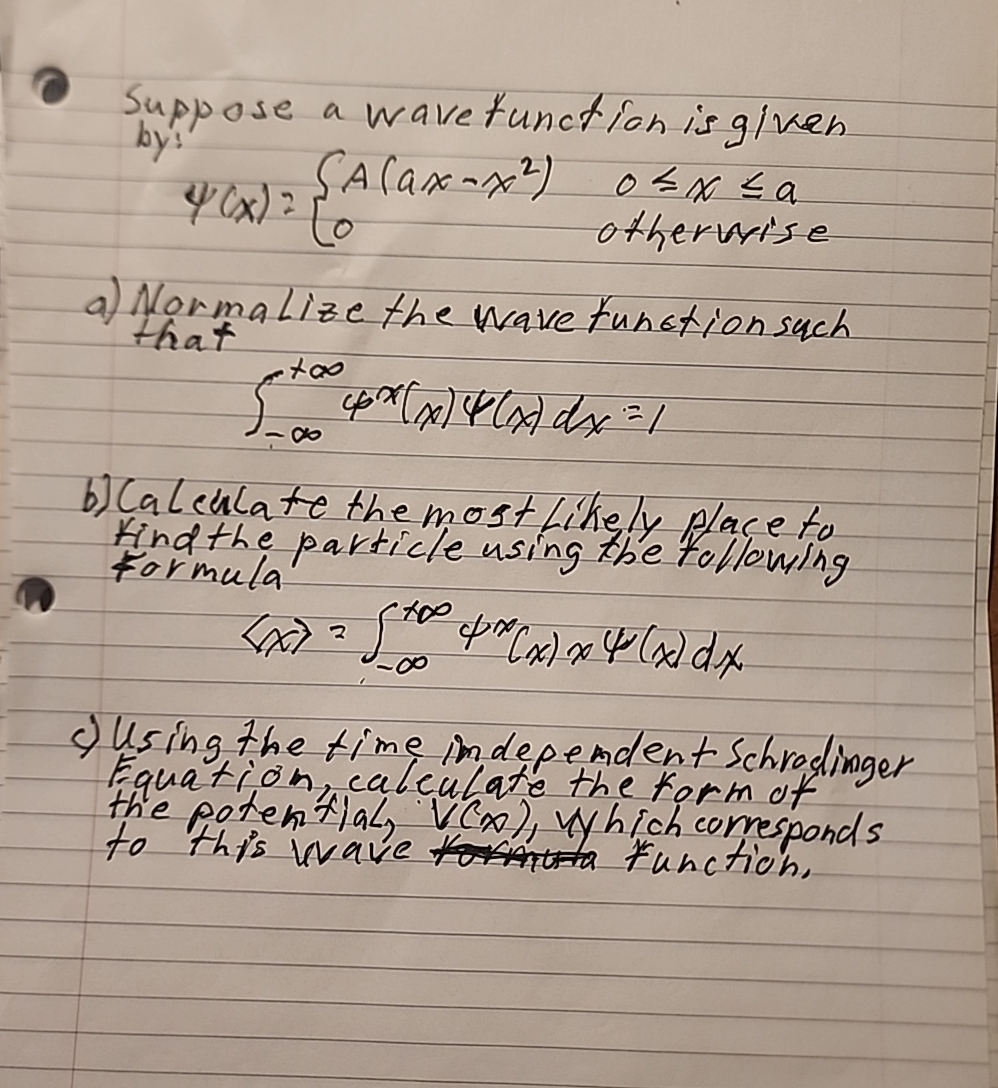 Suppose a wave function is given
by:
ψ(x) = { A(ax - x²)   0 ≤ x ≤ a
0   otherwise
a) Normalize the wave function such
that
∫_{-∞}^{+∞} ψ*(x) ψ(x) dx = 1
b) Calculate the most likely place to
find the particle using the following
formula
<x> = ∫_{-∞}^{+∞} ψ*(x) x ψ(x) dx
c) Using the time independent Schrodinger
Equation, calculate the form of
the potential, V(x), which corresponds
to this wave formula function.